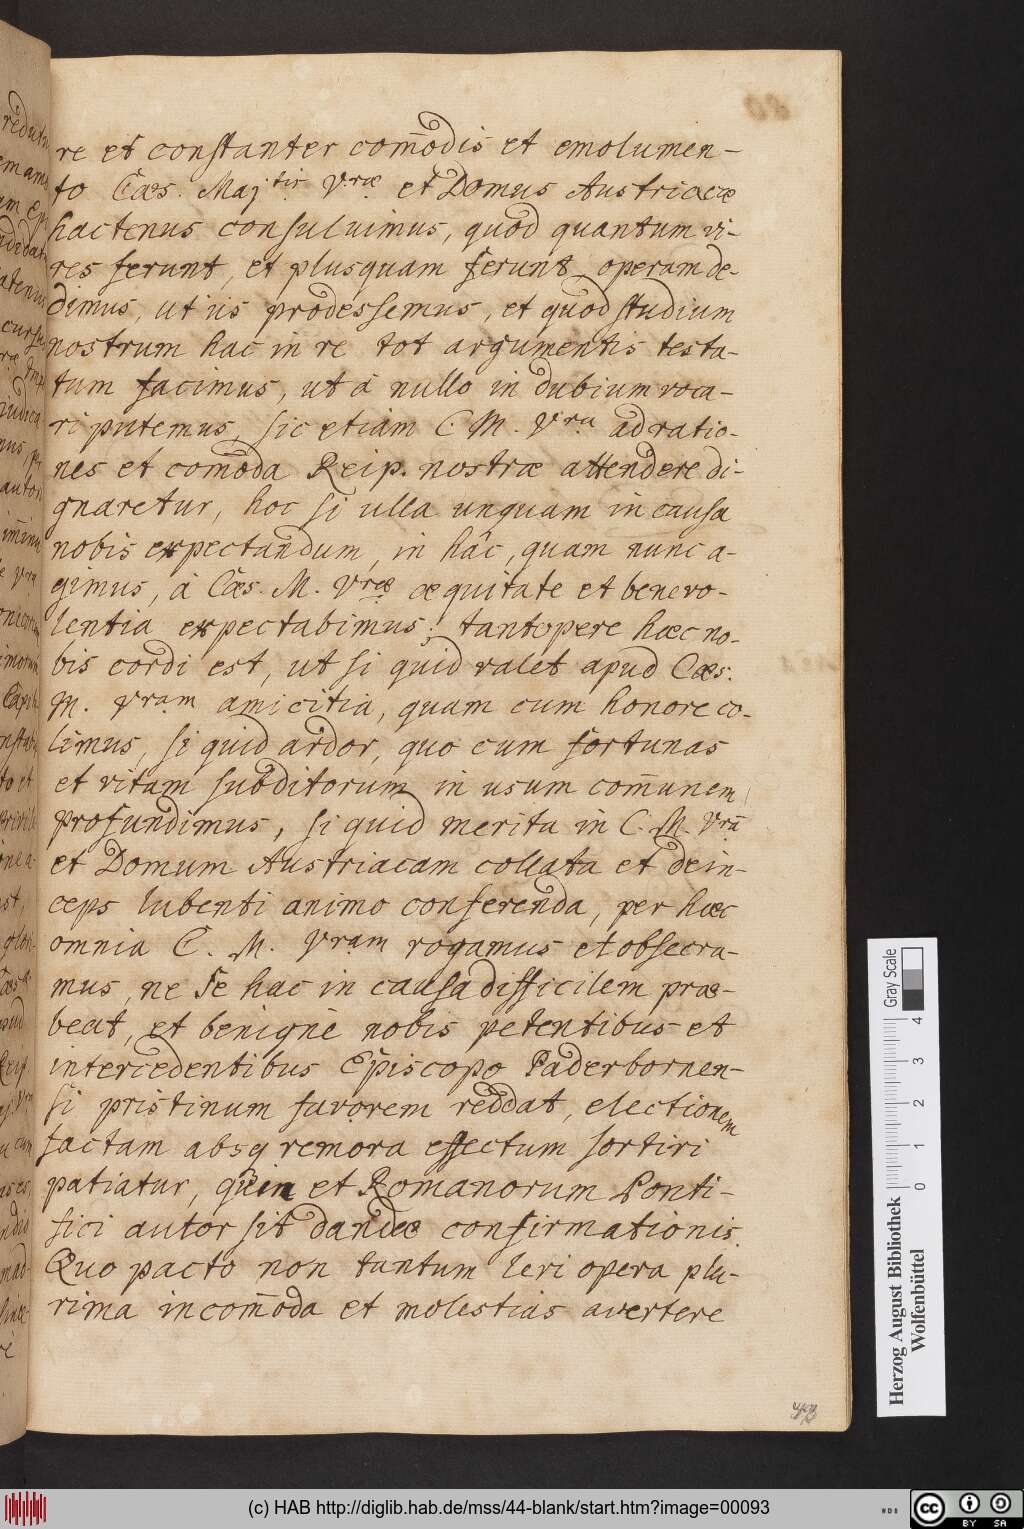 re et constanter com̄odis et emolumen-
to Cæs. Maj.tis Vræ et Domus Austriacæ
hactenus consuluimus, quod quantum vi-
res ferunt, et plusquam ferunt operam de-
dimus, ut iis prodessemus, et quod studium
nostrum hac in re tot argumentis testa-
tum facimus, ut à nullo in dubium voca-
ri putemus, sic etiam C. M. Vra ad ratio-
nes et com̄oda Reip. nostræ attendere di-
gnaretur, hoc si ulla unquam in causa
nobis expectandum, in hâc, quam nunc a-
gimus, à Cæs. M. Vræ æquitate et benevo-
lentia expectabimus; tantopere hæc no-
bis cordi est, ut si quid valet apud Cæs.
M. Vram amicitia, quam cum honore co-
limus, si quid ardor, quo cum fortunas
et vitam subditorum in usum com̄unem
profundimus, si quid merita in C. M. Vrā
et Domum Austriacam collata et dein-
ceps lubenti animo conferenda, per hæc
omnia C. M. Vram rogamus et obsecra-
mus, ne se hac in causa difficilem præ-
beat, et benignè nobis petentibus et
intercedentibus Episcopo Paderbornen-
si pristinum favorem reddat, electionem
factam absq remora effectum sortiri
patiatur, quin et Romanorum Ponti-
fici autor sit dandæ confirmationis.
Quo pacto non tantum leri opera plu-
rima incom̄oda et molestias avertere
Herzog August Bibliothek
Wolfenbüttel
Gray Scale
0 1 2 3 4
(c) HAB http://diglib.hab.de/mss/44-blank/start.htm?image=00093
WDB
cc BY SA